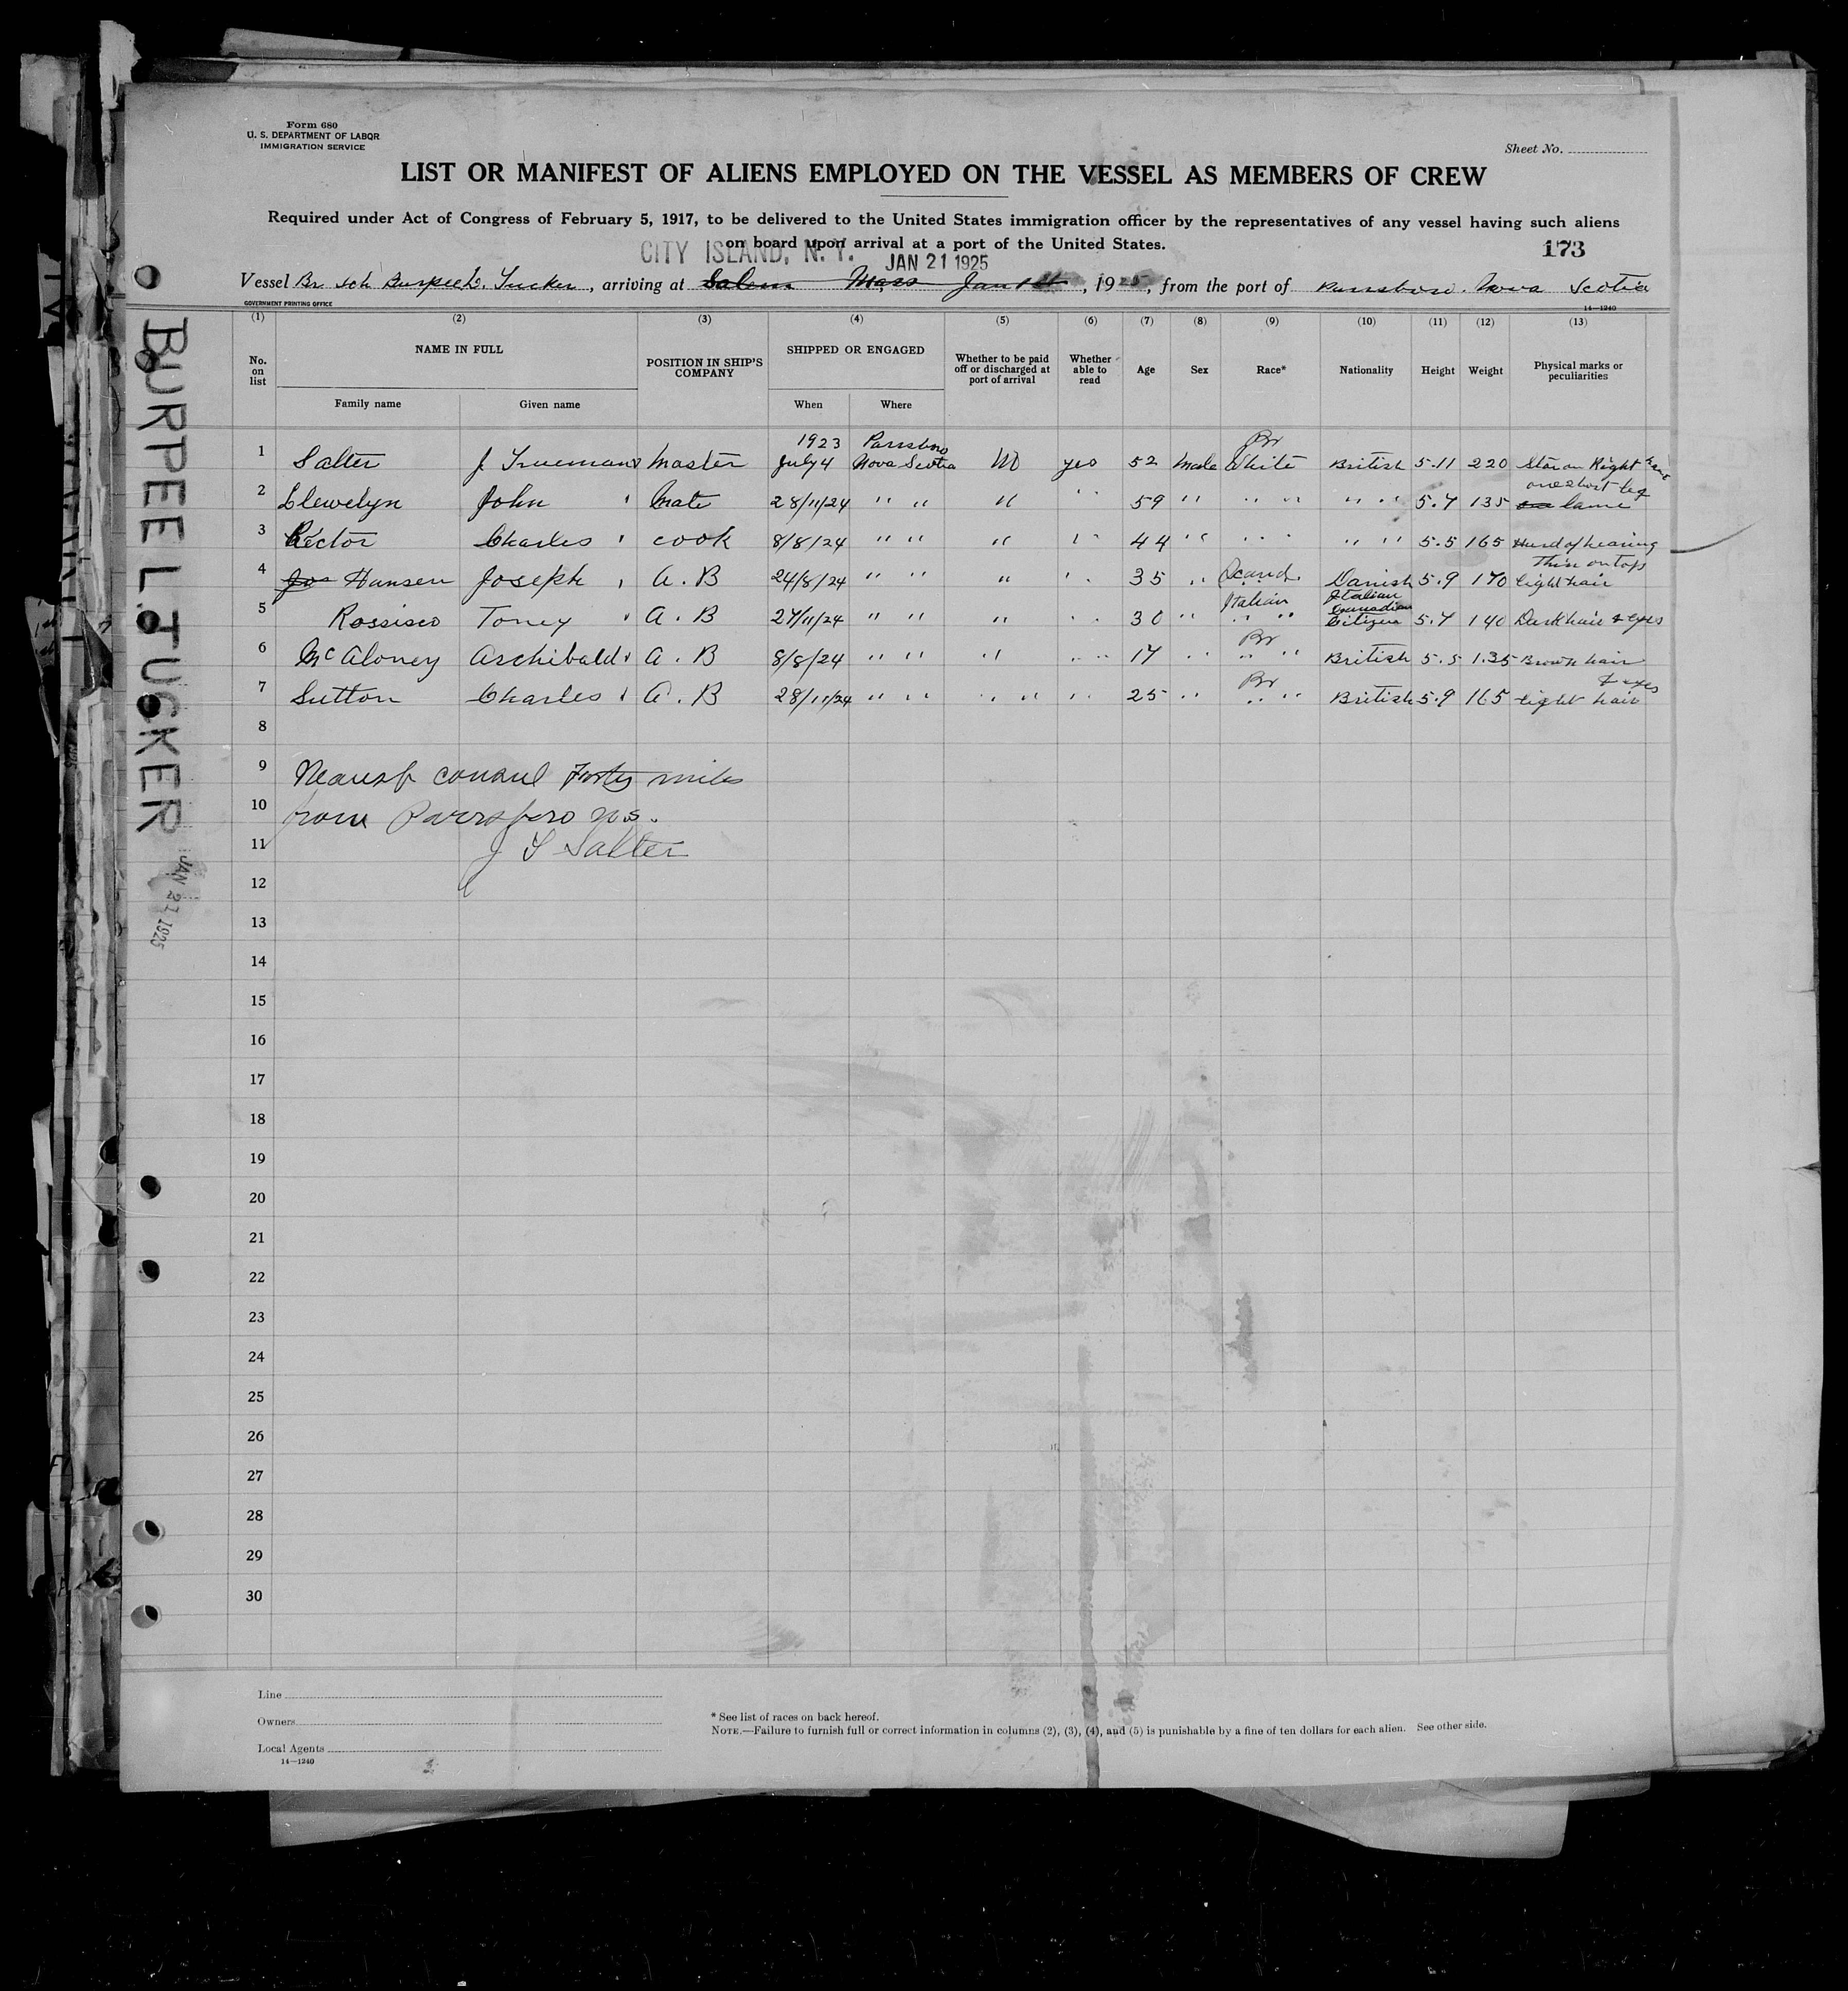 Form 680
U. S. DEPARTMENT OF LABOR
IMMIGRATION SERVICE
Sheet No.
LIST OR MANIFEST OF ALIENS EMPLOYED ON THE VESSEL AS MEMBERS OF CREW
Required under Act of Congress of February 5, 1917, to be delivered to the United States immigration officer by the representatives of any vessel having such aliens
on board upon arrival at a port of the United States.
CITY ISLAND, N. Y. JAN 21 1925
173
Vessel Br. Sch Burpee L. Tucker, arriving at Salem Mass Jan 1st, 1925, from the port of Parrsboro. Nova Scotia
GOVERNMENT PRINTING OFFICE
14—1240
(1) (2) (3) (4) (5) (6) (7) (8) (9) (10) (11) (12) (13)
No. on list NAME IN FULL POSITION IN SHIP'S COMPANY SHIPPED OR ENGAGED Whether to be paid off or discharged at port of arrival Whether able to read Age Sex Race* Nationality Height Weight Physical marks or peculiarities
Family name Given name When Where
1923 Parrsboro Br
1 Salter J Trueman Master July 4 Nova Scotia No yes 52 Male White British 5.11 220 Star on Right hand
one short leg
2 Llewelyn John Mate 28/11/24 " " " " 59 " " " " " 5.7 135 lame
3 Rector Charles cook 8/8/24 " " " " 44 " " " " " 5.5 165 Hard of hearing
Thin on top
4 Jos Hansen Joseph A. B 24/8/24 " " " " 35 " Scand. Danish 5.9 170 light hair
Italian Italian
Canadian
5 Rossisco Toney A. B 27/11/24 " " " " 30 " " " Citizen 5.7 140 Dark hair & eyes
Br
6 McAloney Archibald A. B 8/8/24 " " " " 17 " " " British 5.5 135 Brown hair
Br & eyes
7 Sutton Charles A. B 28/11/24 " " " " " 25 " " " British 5.9 165 light hair
8
9 Nearest consul Forty miles
10 from Parrsboro N.S.
11 J T Salter
12
13
14
15
16
17
18
19
20
21
22
23
24
25
26
27
28
29
30
BURPEE L. TUCKER
JAN 21 1925
Line
Owners
Local Agents
14—1240
* See list of races on back hereof.
NOTE.—Failure to furnish full or correct information in columns (2), (3), (4), and (5) is punishable by a fine of ten dollars for each alien. See other side.